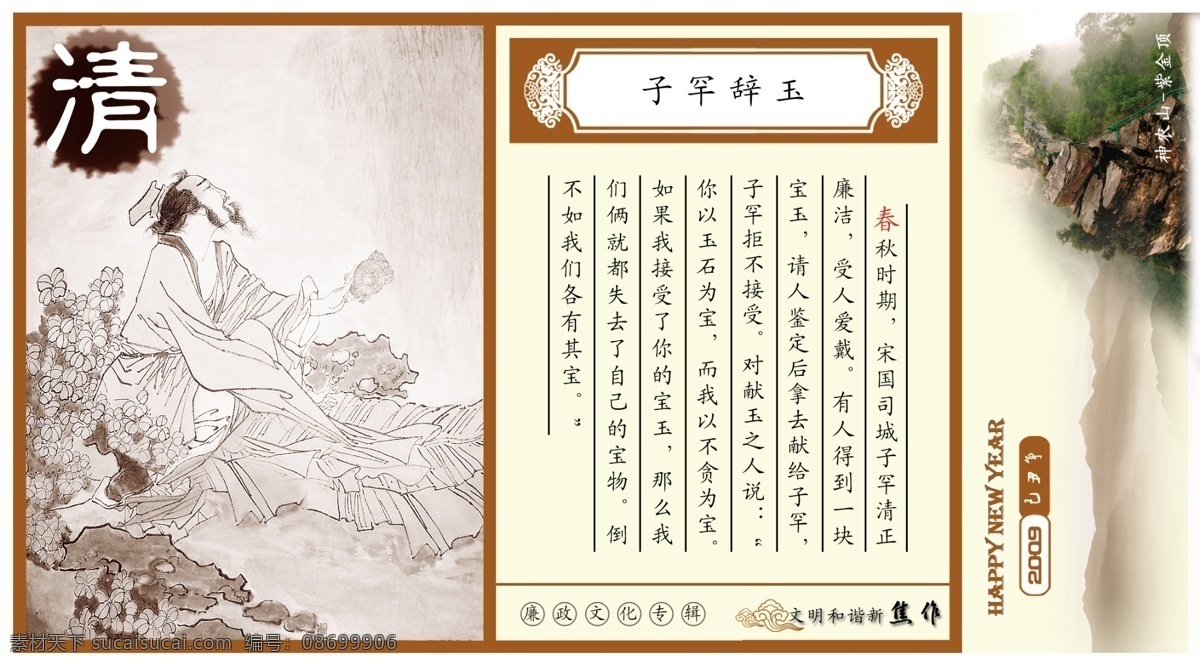 清
子罕辞玉
春秋时期，宋国司城子罕清正
廉洁，受人爱戴。有人得到一块
宝玉，请人鉴定后拿去献给子罕，
子罕拒不接受。对献玉之人说：“
你以玉石为宝，而我以不贪为宝。
如果我接受了你的宝玉，那么我
们俩就都失去了自己的宝物。倒
不如我们各有其宝。”
廉政文化专辑
文明和谐新焦作
神农山-紫金顶
HAPPY NEW YEAR
2009 己丑年
素材天下 sucaisucai.com 编号：08699906